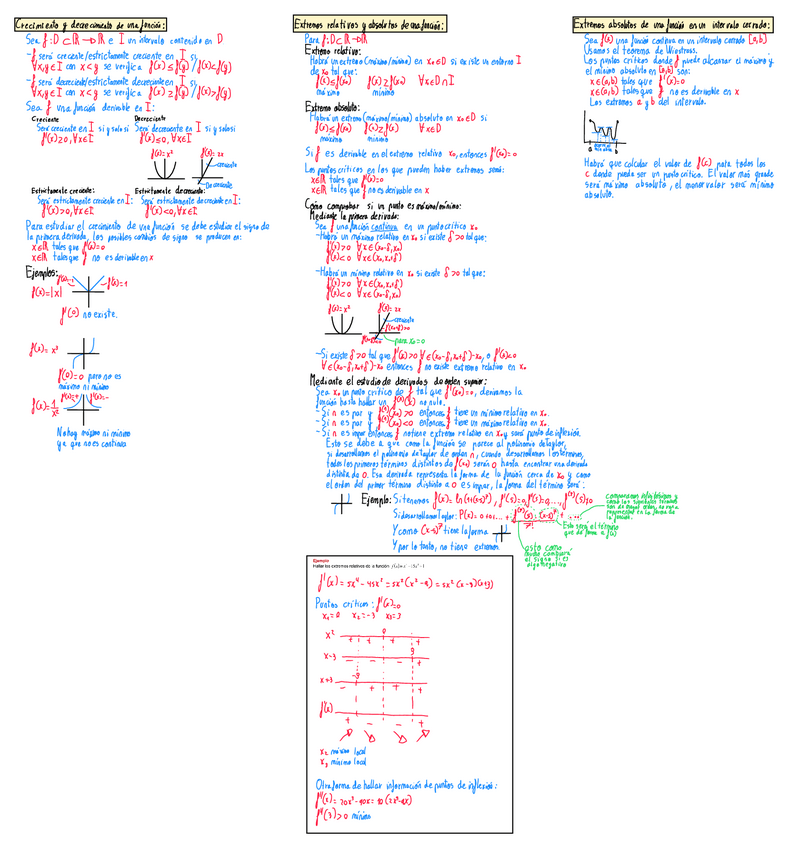 Crecimiento y decrecimiento de una función:
Sea f: D ⊂ ℝ → ℝ e I un intervalo contenido en D
-f será creciente/estrictamente creciente en I si
∀x,y ∈ I con x<y se verifica f(x)≤f(y)/f(x)<f(y)
-f será decreciente/estrictamente decreciente en I si
∀x,y ∈ I con x<y se verifica f(x)≥f(y)/f(x)>f(y)
Sea f una función derivable en I:
Creciente Decreciente
Será creciente en I si y solo si Será decreciente en I si y solo si
f'(x)≥0, ∀x∈I f'(x)≤0, ∀x∈I
f(x)=x² f'(x)=2x
creciente
Decreciente
Estrictamente creciente: Estrictamente decreciente:
Será estrictamente creciente en I: Será estrictamente decreciente en I:
f'(x)>0, ∀x∈I f'(x)<0, ∀x∈I
Para estudiar el crecimiento de una función se debe estudiar el signo de
la primera derivada, los posibles cambios de signo se producen en:
x∈ℝ tales que f'(x)=0
x∈ℝ tales que f no es derivable en x
Ejemplos:
f(x)=|x| f'(x)=-1 f'(x)=1
f'(0) no existe.
f(x)=x³
f'(0)=0 pero no es
máximo ni mínimo
f(x)=1/x²
No hay máximo ni mínimo
ya que no es continua
Extremos relativos y absolutos de una función:
Para f: D ⊂ ℝ → ℝ
Extremo relativo:
Habrá un extremo (máximo/mínimo) en x₀∈D si existe un entorno I
de x₀ tal que:
f(x)≤f(x₀) f(x)≥f(x₀) ∀x∈D∩I
máximo mínimo
Extremo absoluto:
Habrá un extremo (máximo/mínimo) absoluto en x₀∈D si
f(x)≤f(x₀) f(x)≥f(x₀) ∀x∈D
máximo mínimo
Si f es derivable en el extremo relativo x₀, entonces f'(x₀)=0
Los puntos críticos en los que pueden haber extremos serán:
x∈ℝ tales que f'(x)=0
x∈ℝ tales que f no es derivable en x
Cómo comprobar si un punto es máximo/mínimo:
Mediante la primera derivada:
Sea f una función continua en un punto crítico x₀
-Habrá un máximo relativo en x₀ si existe δ>0 tal que:
f'(x)>0 ∀x∈(x₀-δ,x₀)
f'(x)<0 ∀x∈(x₀,x₀+δ)
-Habrá un mínimo relativo en x₀ si existe δ>0 tal que:
f'(x)>0 ∀x∈(x₀,x₀+δ)
f'(x)<0 ∀x∈(x₀-δ,x₀)
f(x)=x² f'(x)=2x
creciente
para x₀=0
-Si existe δ>0 tal que f'(x)>0 ∀∈(x₀-δ,x₀+δ)-x₀, o f'(x)<0
∀∈(x₀-δ,x₀+δ)-x₀ entonces f no existe extremo relativo en x₀
Mediante el estudio de derivadas de orden superior:
Sea x₀ un punto crítico de f tal que f'(x₀)=0, derivamos la
función hasta hallar un f⁽ⁿ⁾(x) no nulo.
-Si n es par y f⁽ⁿ⁾(x₀)>0 entonces f tiene un mínimo relativo en x₀.
-Si n es par y f⁽ⁿ⁾(x₀)<0 entonces f tiene un máximo relativo en x₀.
-Si n es impar entonces f no tiene extremo relativo en x₀ y será punto de inflexión.
Esto se debe a que como la función se parece al polinomio de taylor,
si desarrollamos el polinomio de taylor de orden n, cuando desarrollamos los términos,
todos los primeros términos distintos de f(x₀) serán 0 hasta encontrar una derivada
distinta de 0. Esa derivada representa la forma de la función cerca de x₀ y como
el orden del primer término distinto a 0 es impar, la forma del término será:
Ejemplo: Si tenemos
Si desarrollamos taylor:
Y como (x-5)⁷ tiene la forma
Y por lo tanto, no tiene extremos.
Este será el término
que da forma a f(x)
Ejemplo
Hallar los extremos relativos de la función f(x)=x⁵-15x³-1
f'(x)=5x⁴-45x²=5x²(x²-9)=5x²(x-3)(x+3)
Puntos críticos: f'(x)=0
x₁=0 x₂=-3 x₃=3
x² 0
+ + + +
x-3 3
- - - +
x+3 -3
- + + +
f'(x)
+ - - +
x₂ máximo local
x₃ mínimo local
Otra forma de hallar información de puntos de inflexión:
f''(3)>0 mínimo
Extremos absolutos de una función en un intervalo cerrado:
Sea f(x) una función continua en un intervalo cerrado [a,b]
Usamos el teorema de Wirstrass.
Los puntos críticos donde f puede alcanzar el máximo y
el mínimo absoluto en [a,b] son:
x∈(a,b) tales que f'(x)=0
x∈(a,b) tales que f no es derivable en x
Los extremos a y b del intervalo.
a b
Habrá que calcular el valor de f(c) para todos los
c donde pueda ser un punto crítico. El valor más grande
será máximo absoluto, el menor valor será mínimo
absoluto.